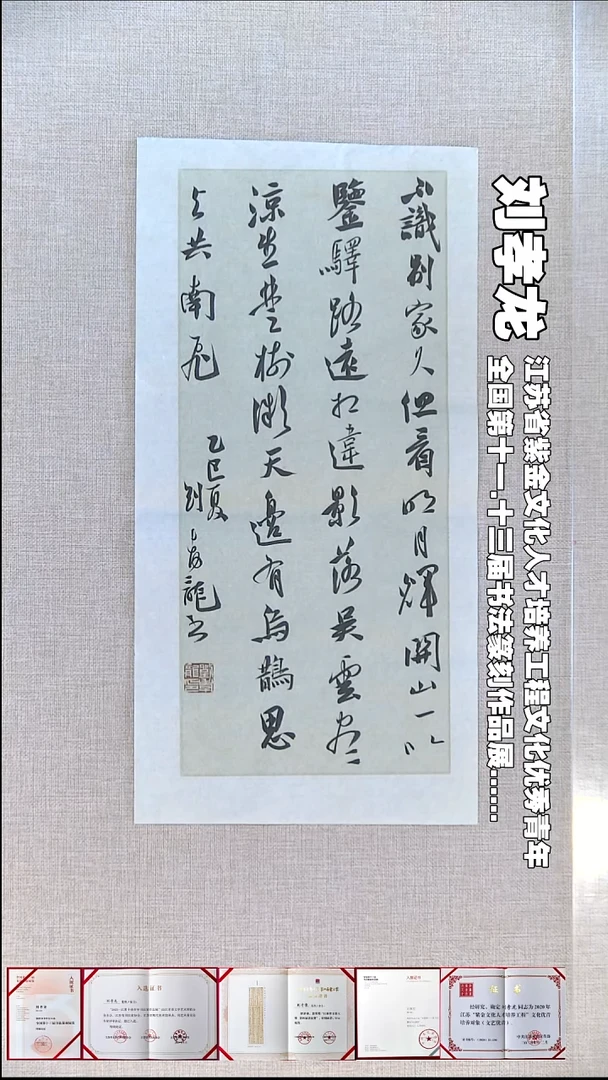 刘孝龙
江苏省紫金文化人才培养工程文化优秀青年
全国第十一.十三届书法篆刻作品展......
不識別家久但看明月輝關山一以
鑒驛路遠相違影落吳雲盡
涼生楚樹微天邊有烏鵲思
与共南飛
乙巳夏
劉孝龍书
入选证书
入选证书
证书
经研究，确定刘孝龙同志为2020年
江苏“紫金文化人才培养工程”文化优青
培养对象（文艺优青）。